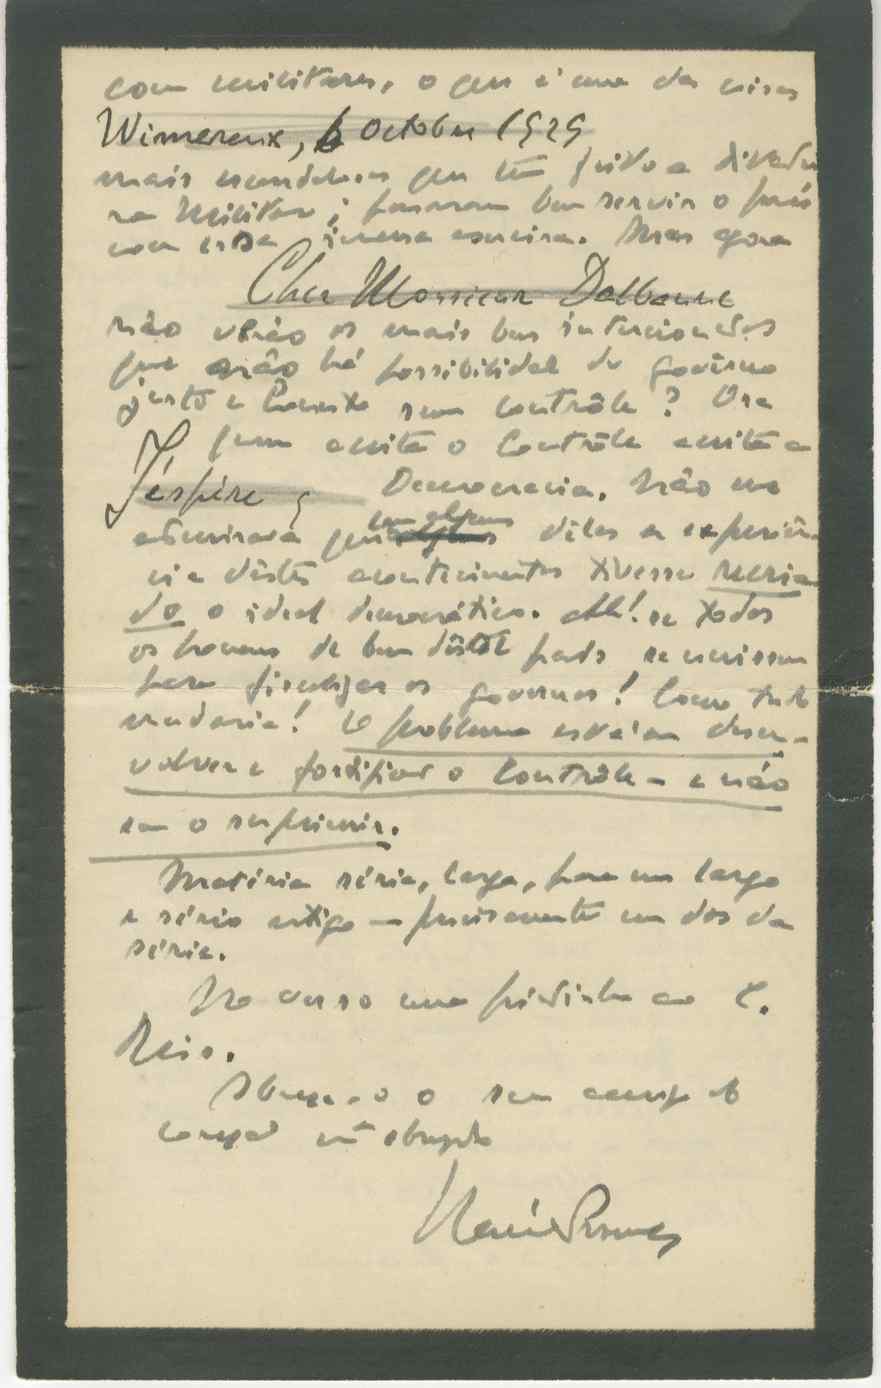 com militares, o que é uma das coisas
Wimereux, 6 October 1929
mais escandalosas que tem feito a Ditadu
ra Militar; pensaram bem servir o país
com essa imensa asneira. Mas agora
Cher Monsieur Dalbanne
não verão os mais bem intencionados
que não há possibilidade de govêrno
justo e honesto sem contrôle? Ora
quem aceita o Contrôle aceita a
J'éspère q
Democracia. Não me
admirava que em alguns dêles a experiên
cia dêstes acontecimentos tivesse recria
do o ideal democrático. Ah! se todos
os homens de bem dêste país se unissem
para fiscalizar os governos! Como tudo
mudaria! O problema está em desen-
volver e fortificar o Contrôle – e não
em o suprimir.
Matéria séria, larga, para um largo
e sério artigo – precisamente um dos da
série.
No verso uma piadinha ao C.
Reis.
Abraça-o o seu amigo
camarada mto obrigado